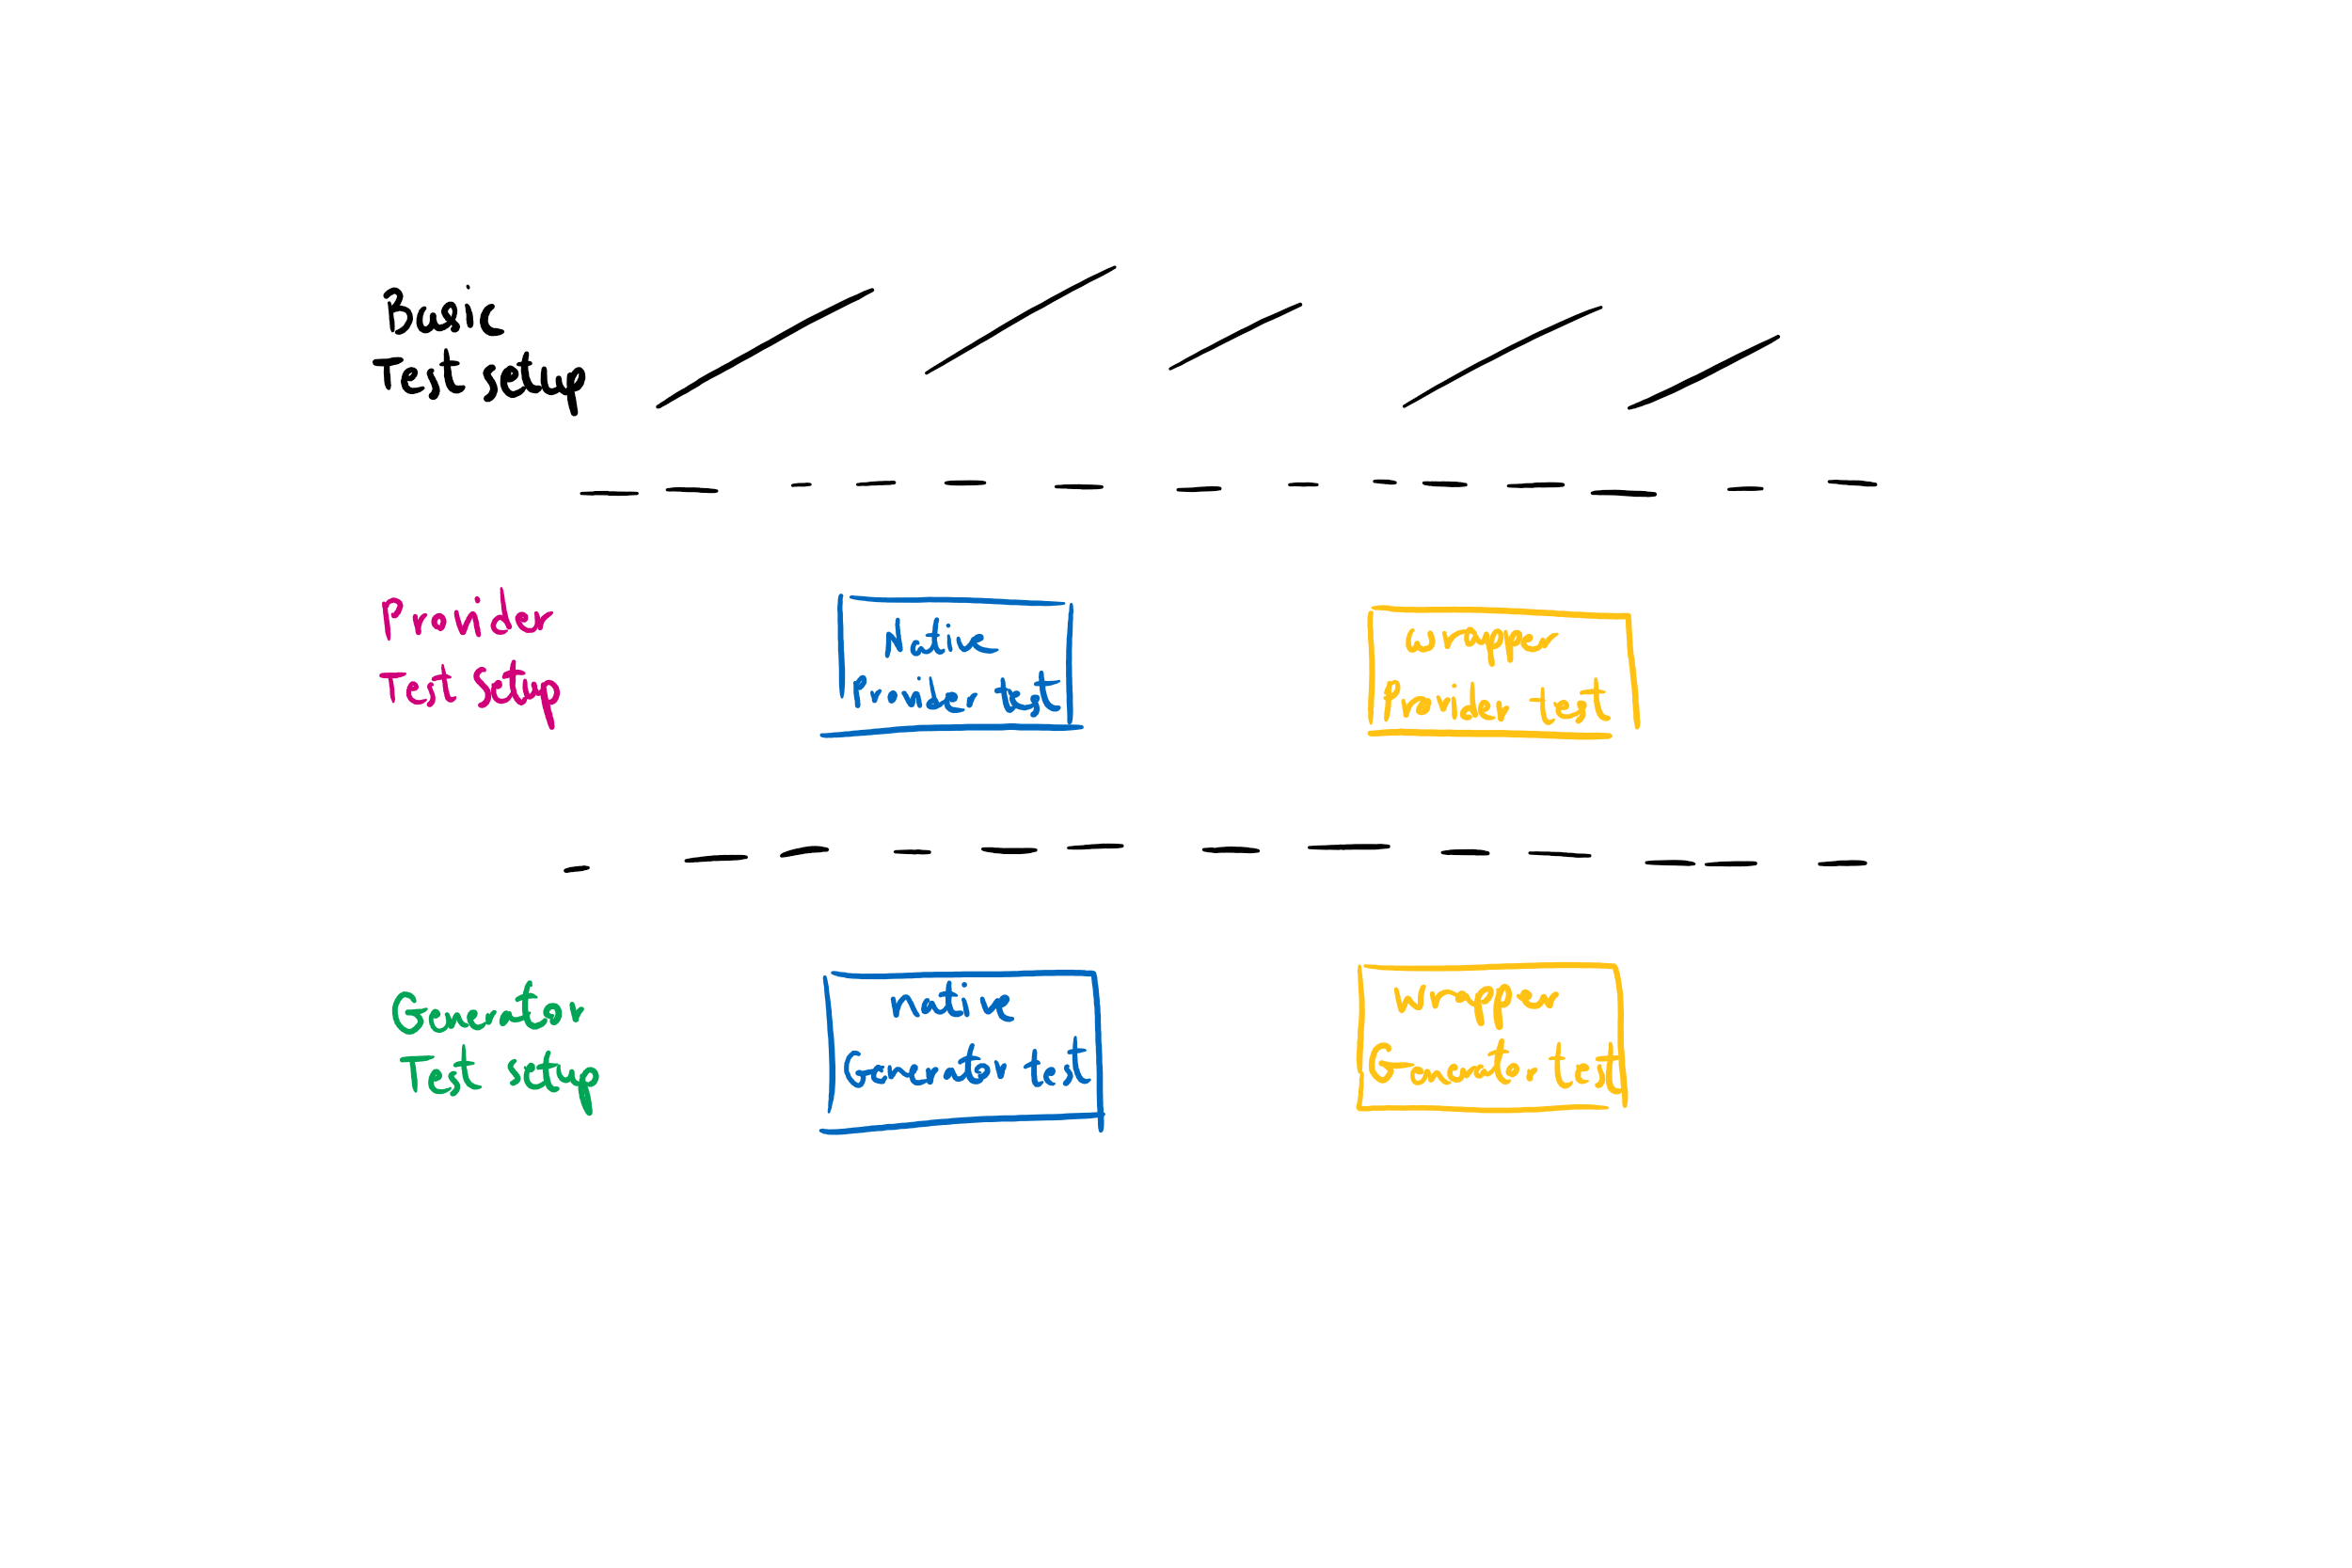 Basic
Test setup
Provider
Test setup
Native
Provider test
wrapper
Provider test
Generator
Test setup
native
Generator test
Wrapper
Generator test